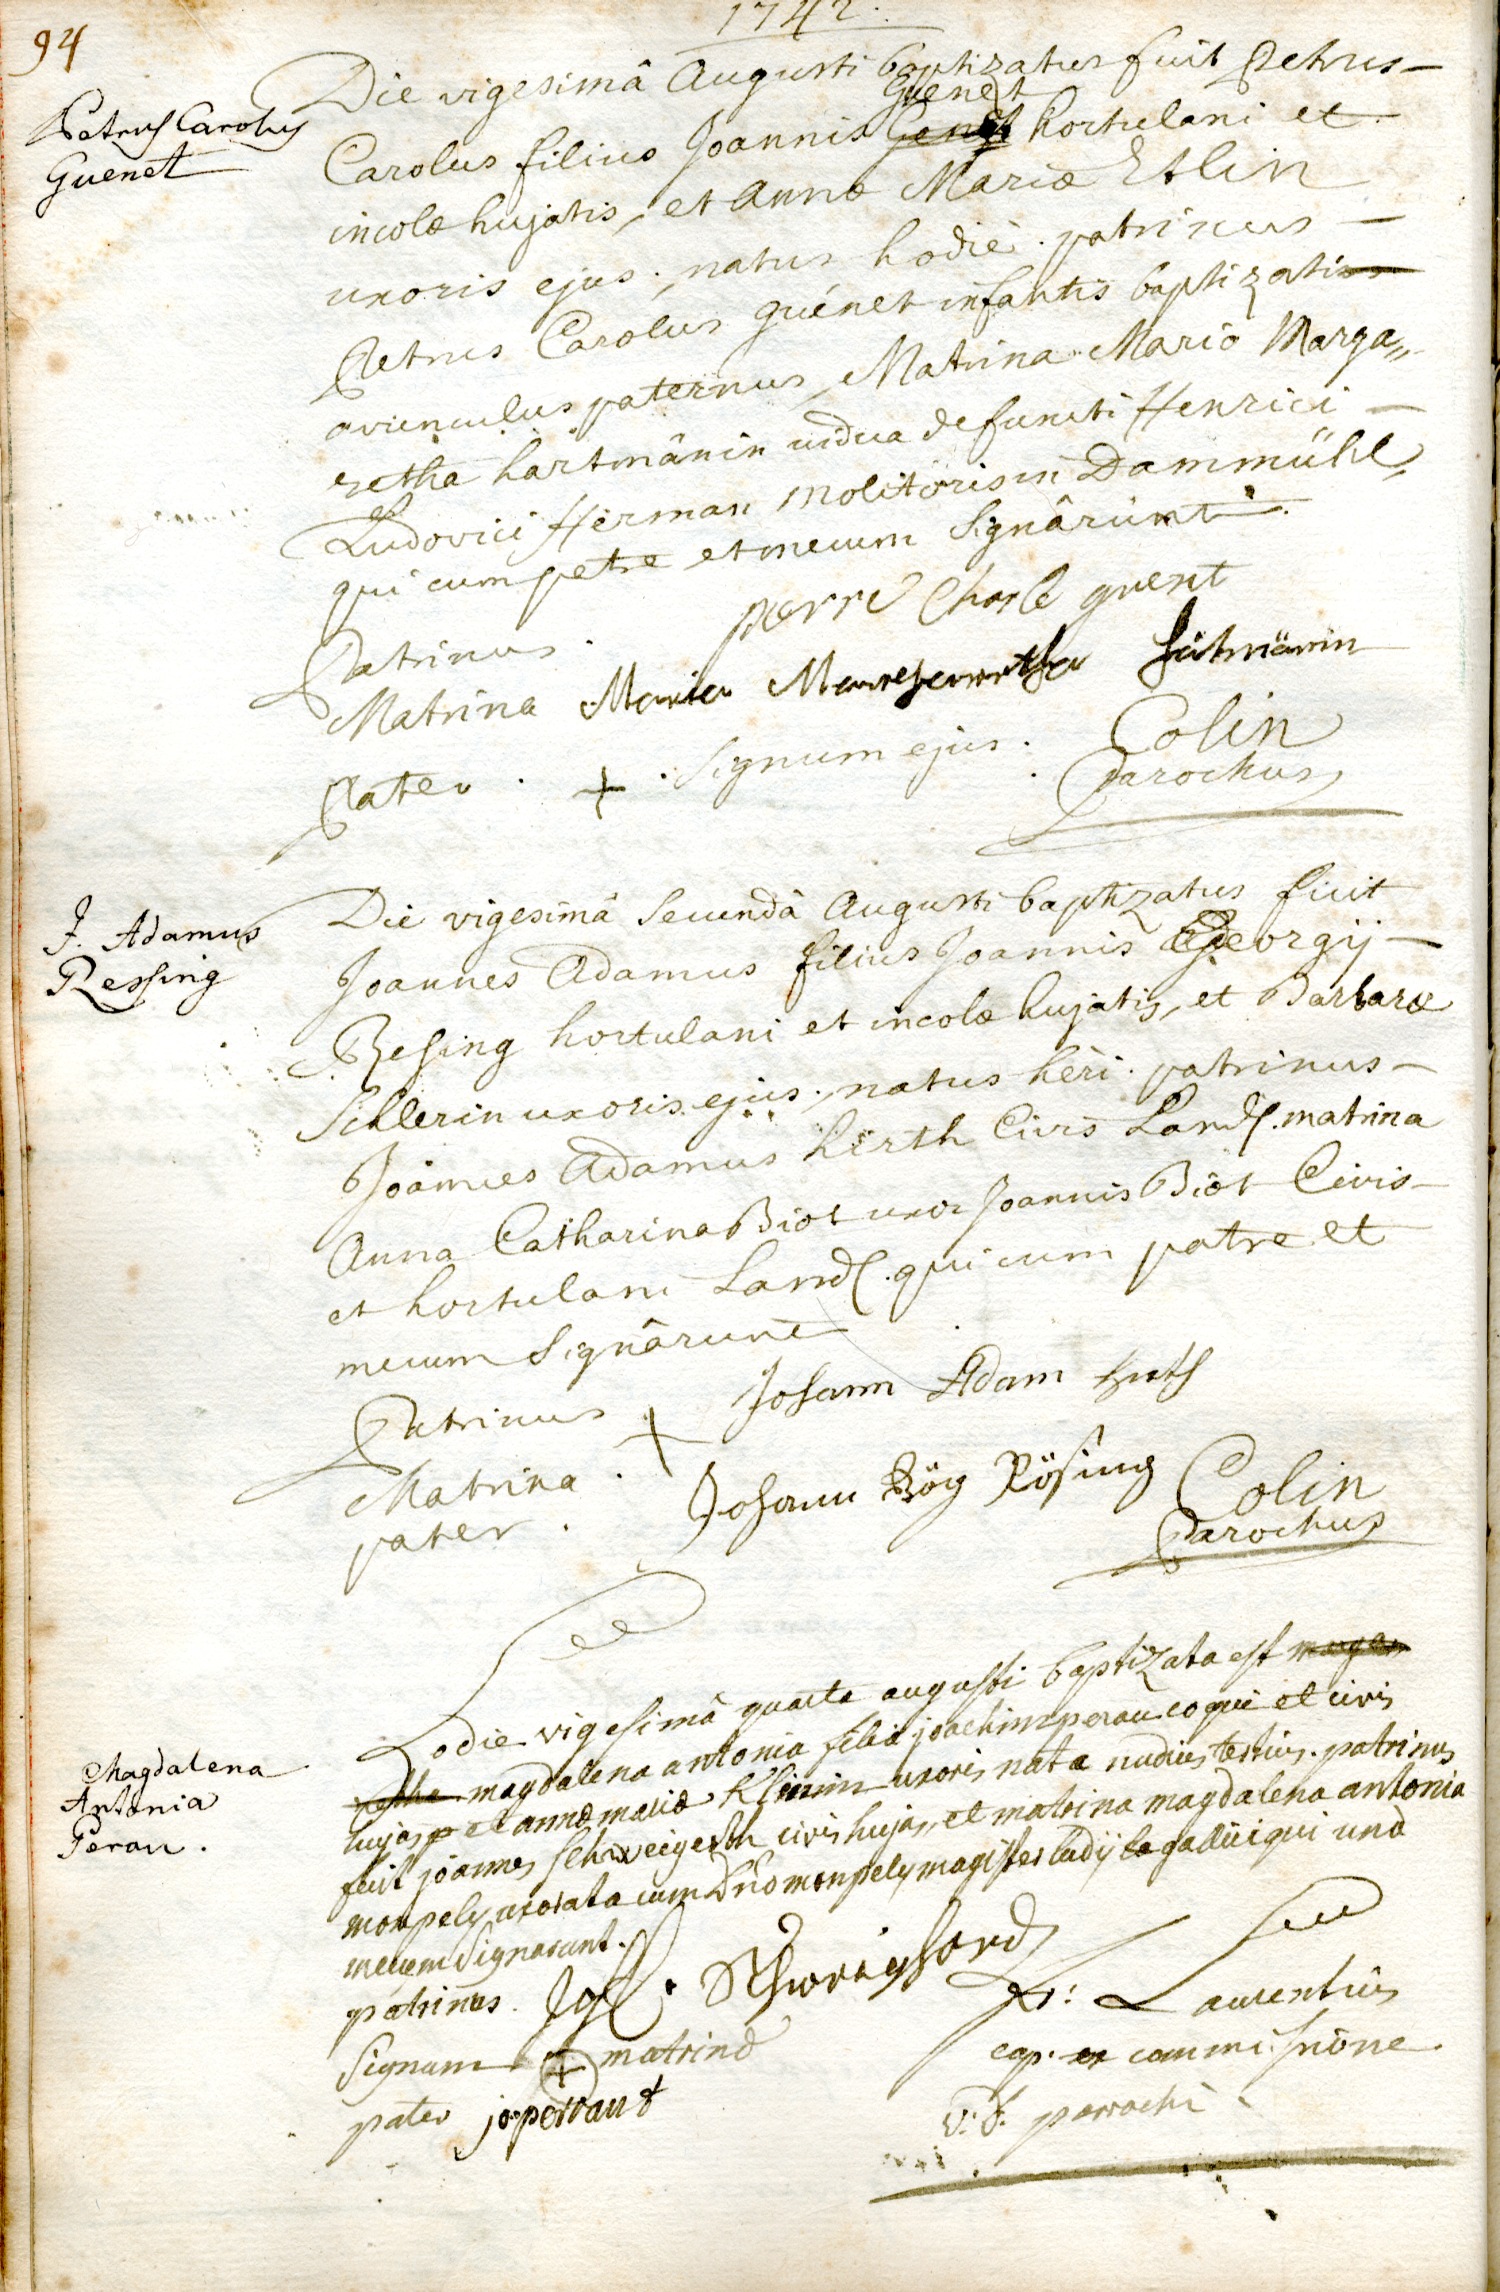 94
1742.
Petrus Carolus
Guenet
Die vigesimâ Augusti baptizatus fuit Petrus
Guenet
Carolus filius Joannis Genet hortulani et
incolæ hujatis, et Annæ Mariæ Etlin
uxoris ejus, natus hodiè. patrinus
Petrus Carolus guénet infantis baptizati
avunculus paternus, Matrina Maria Marga„
retha hartmânin vidua defuncti Henrici
Ludovici Herman molitoris in Dammühl,
qui cum petre et mecum signârunt.
Patrinus. pierre Charle guenet
Matrina Maria Margaretha Hätmänin
Pater. + . signum ejus. Colin
Parochus
J. Adamus
Ressing
Die vigesimâ secundâ Augusti baptizatus fuit
Joannes Adamus filius Joannis Georgij
Resing hortulani et incolæ hujatis, et Barbaræ
Schlerin uxoris ejus, natus hèri. patrinus
Joânnes Adamus hirth Civis Land. matrina
Anna Catharina Biot uxor Joannis Biot Civis
et hortulani Land. qui cum patre et
mecum signârunt
Patrinus Johann Adam
Matrina. +
pater. Johann Jög Rösing Colin
Parochus
Magdalena
Antonia
Peran.
hodie vigesimâ quarta augusti baptizata est marga
retha magdalena antonia filia joachim perau coqui et civis
hujas et annæ mariæ Klimin uxoris nata nudius tertius. patrinus
fuit joannes schweigerth civis hujas, et matrina magdalena antonia
monpely uxorata cum Dno monpely magister ludij qui unà
mecum signarunt.
patrinus. Joh. Schweighard
signum + matrinæ
pater jo perraut
fr: Laurentius
cap. ex commissione
parochi